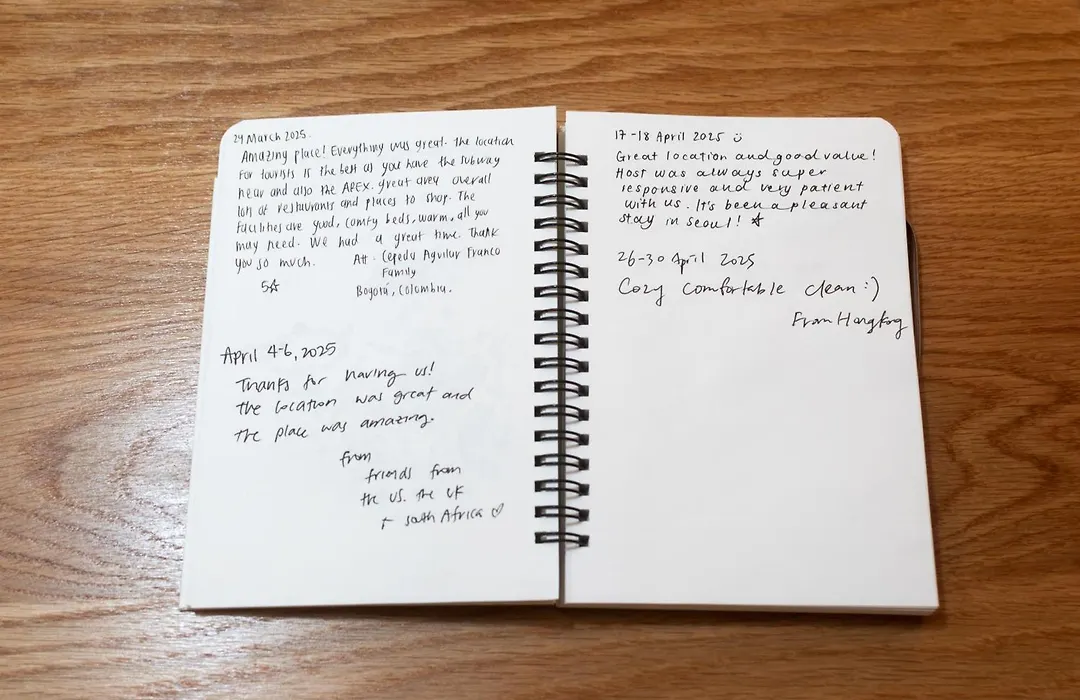 24 March 2025.
Amazing place! Everything was great. The location
for tourists is the best as you have the subway
near and also the APEX. great area overall
lots of restaurants and places to shop. The
facilities are good, comfy beds, warm, all you
may need. We had a great time. Thank
you so much.
Att. Cepeda Aguilar Franco
Family
Bogotá, Colombia.
5☆
April 4-6, 2025
Thanks for having us!
the location was great and
the place was amazing.
from
friends from
the US. the UK
+ south Africa ♡
17-18 April 2025 ü
Great location and good value!
Host was always super
responsive and very patient
with us. It's been a pleasant
stay in seoul! ☆
26-30 April 2025
Cozy comfortable clean :)
From Hongkong